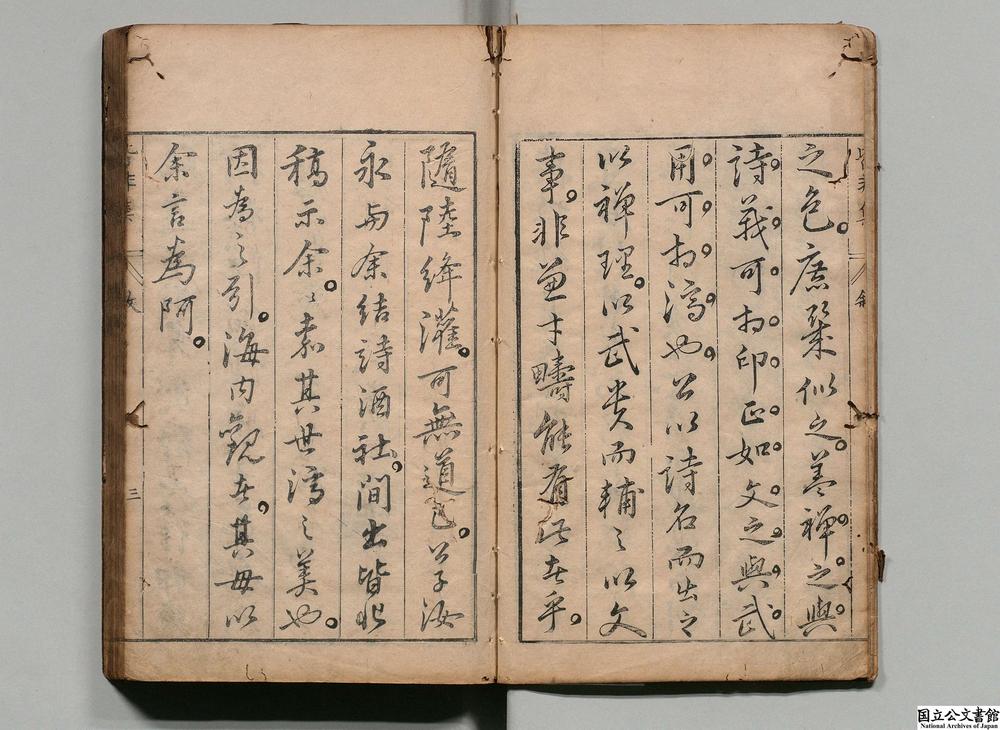 之色。庶幾似之。蓋禪之與
詩。義可相印。正如文之與武
用。可相濟也。公以詩名而出之
以禪理。以武貴而輔之以文
事。非兼才疇能有此者乎。
隨陸絳灌。可無道已。公子汝
永与余結詩酒社。間出皆非
稿示余。〻嘉其世濟之美也。
因為之引。海內觀者。其毋以
余言為阿。
三
国立公文書館
National Archives of Japan